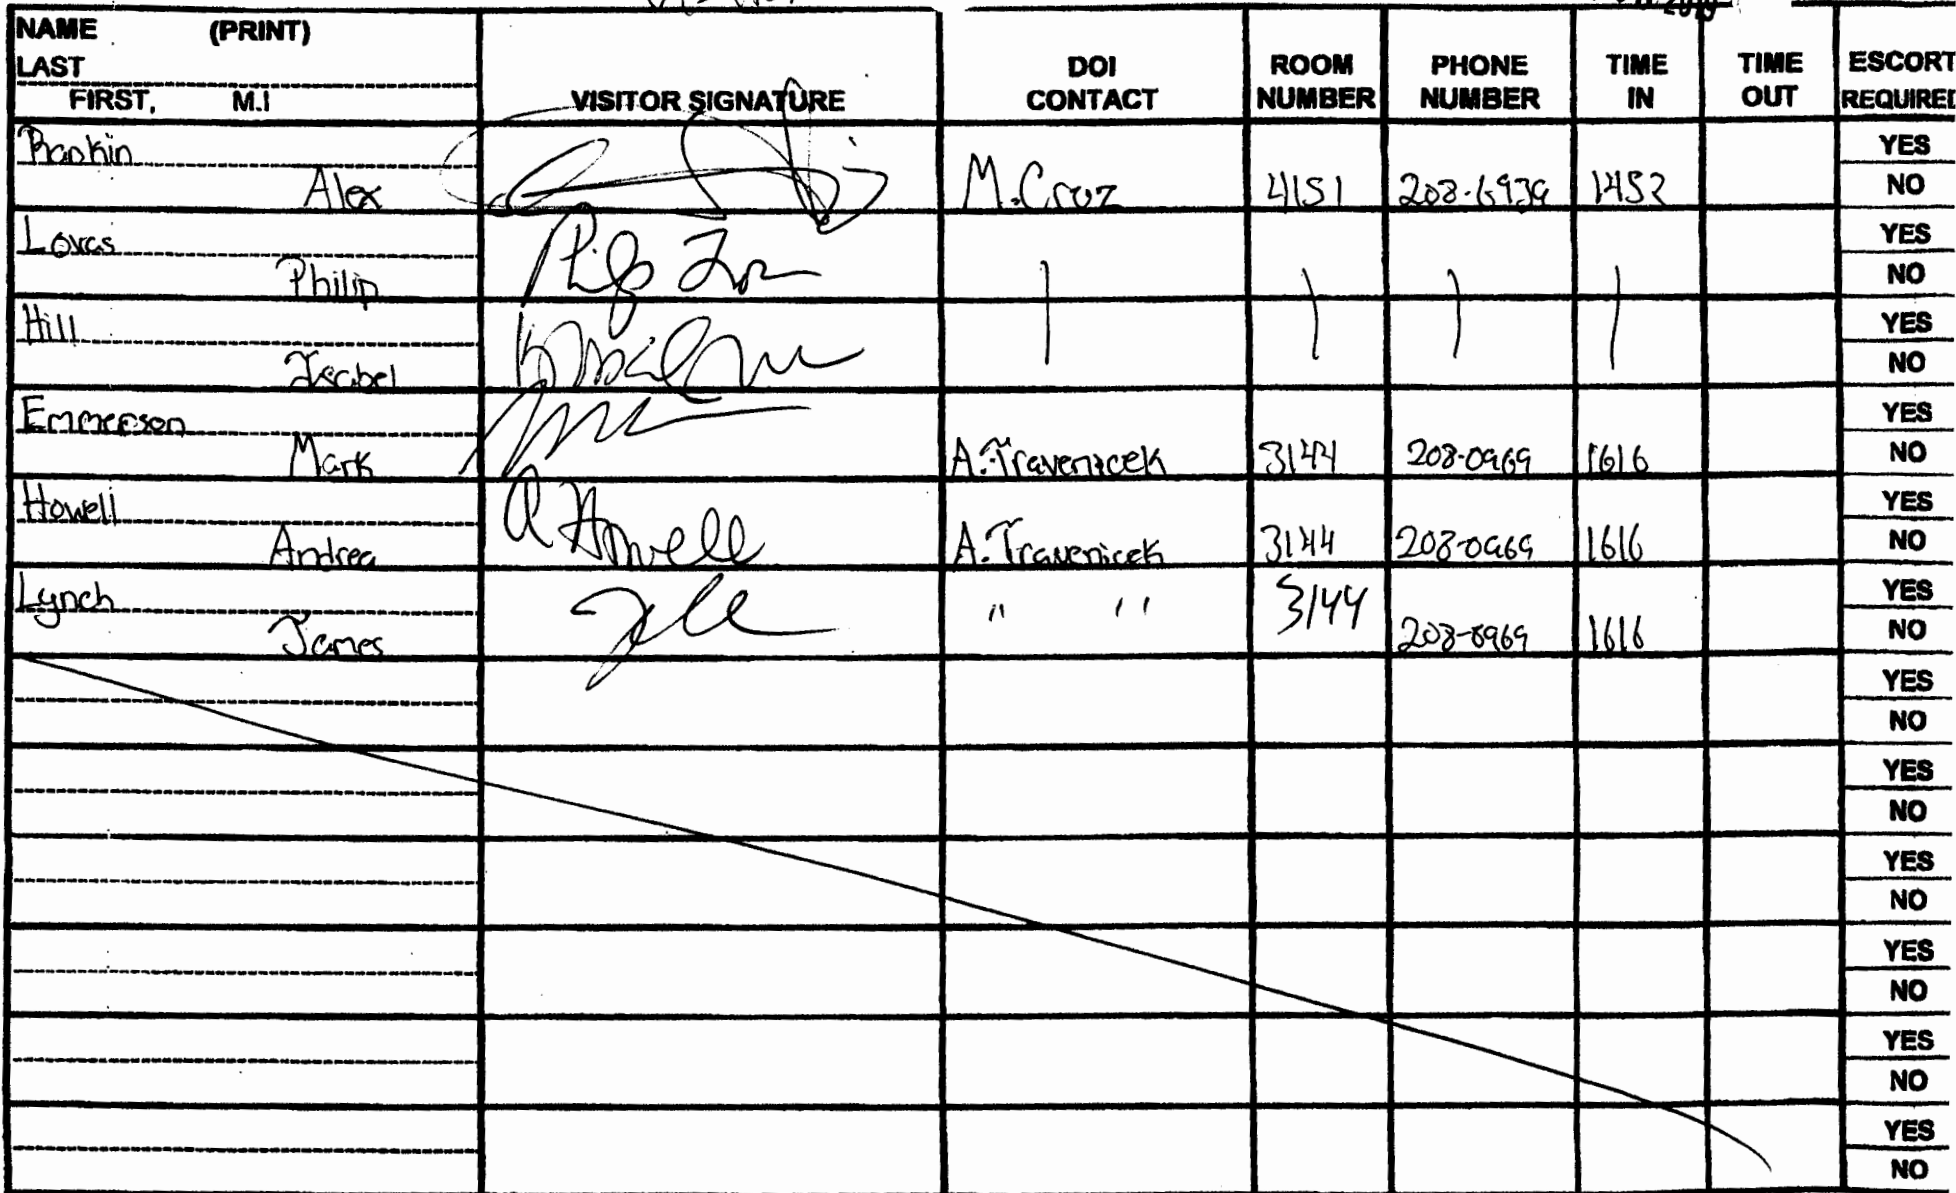 2019
NAME (PRINT)
LAST
FIRST, M.I
VISITOR SIGNATURE
DOI CONTACT
ROOM NUMBER
PHONE NUMBER
TIME IN
TIME OUT
ESCORT REQUIRED
Rankin YES
Alex M.Cruz 4151 208-6939 1452 NO
Lovas YES
Philip NO
Hill YES
Isabel NO
Emmerson YES
Mark A.Travenicek 3144 208-0969 1616 NO
Howell A Howell YES
Andrea A.Travenicek 3144 208-0969 1616 NO
Lynch " " 3144 YES
James 208-0969 1616 NO
YES
NO
YES
NO
YES
NO
YES
NO
YES
NO
YES
NO